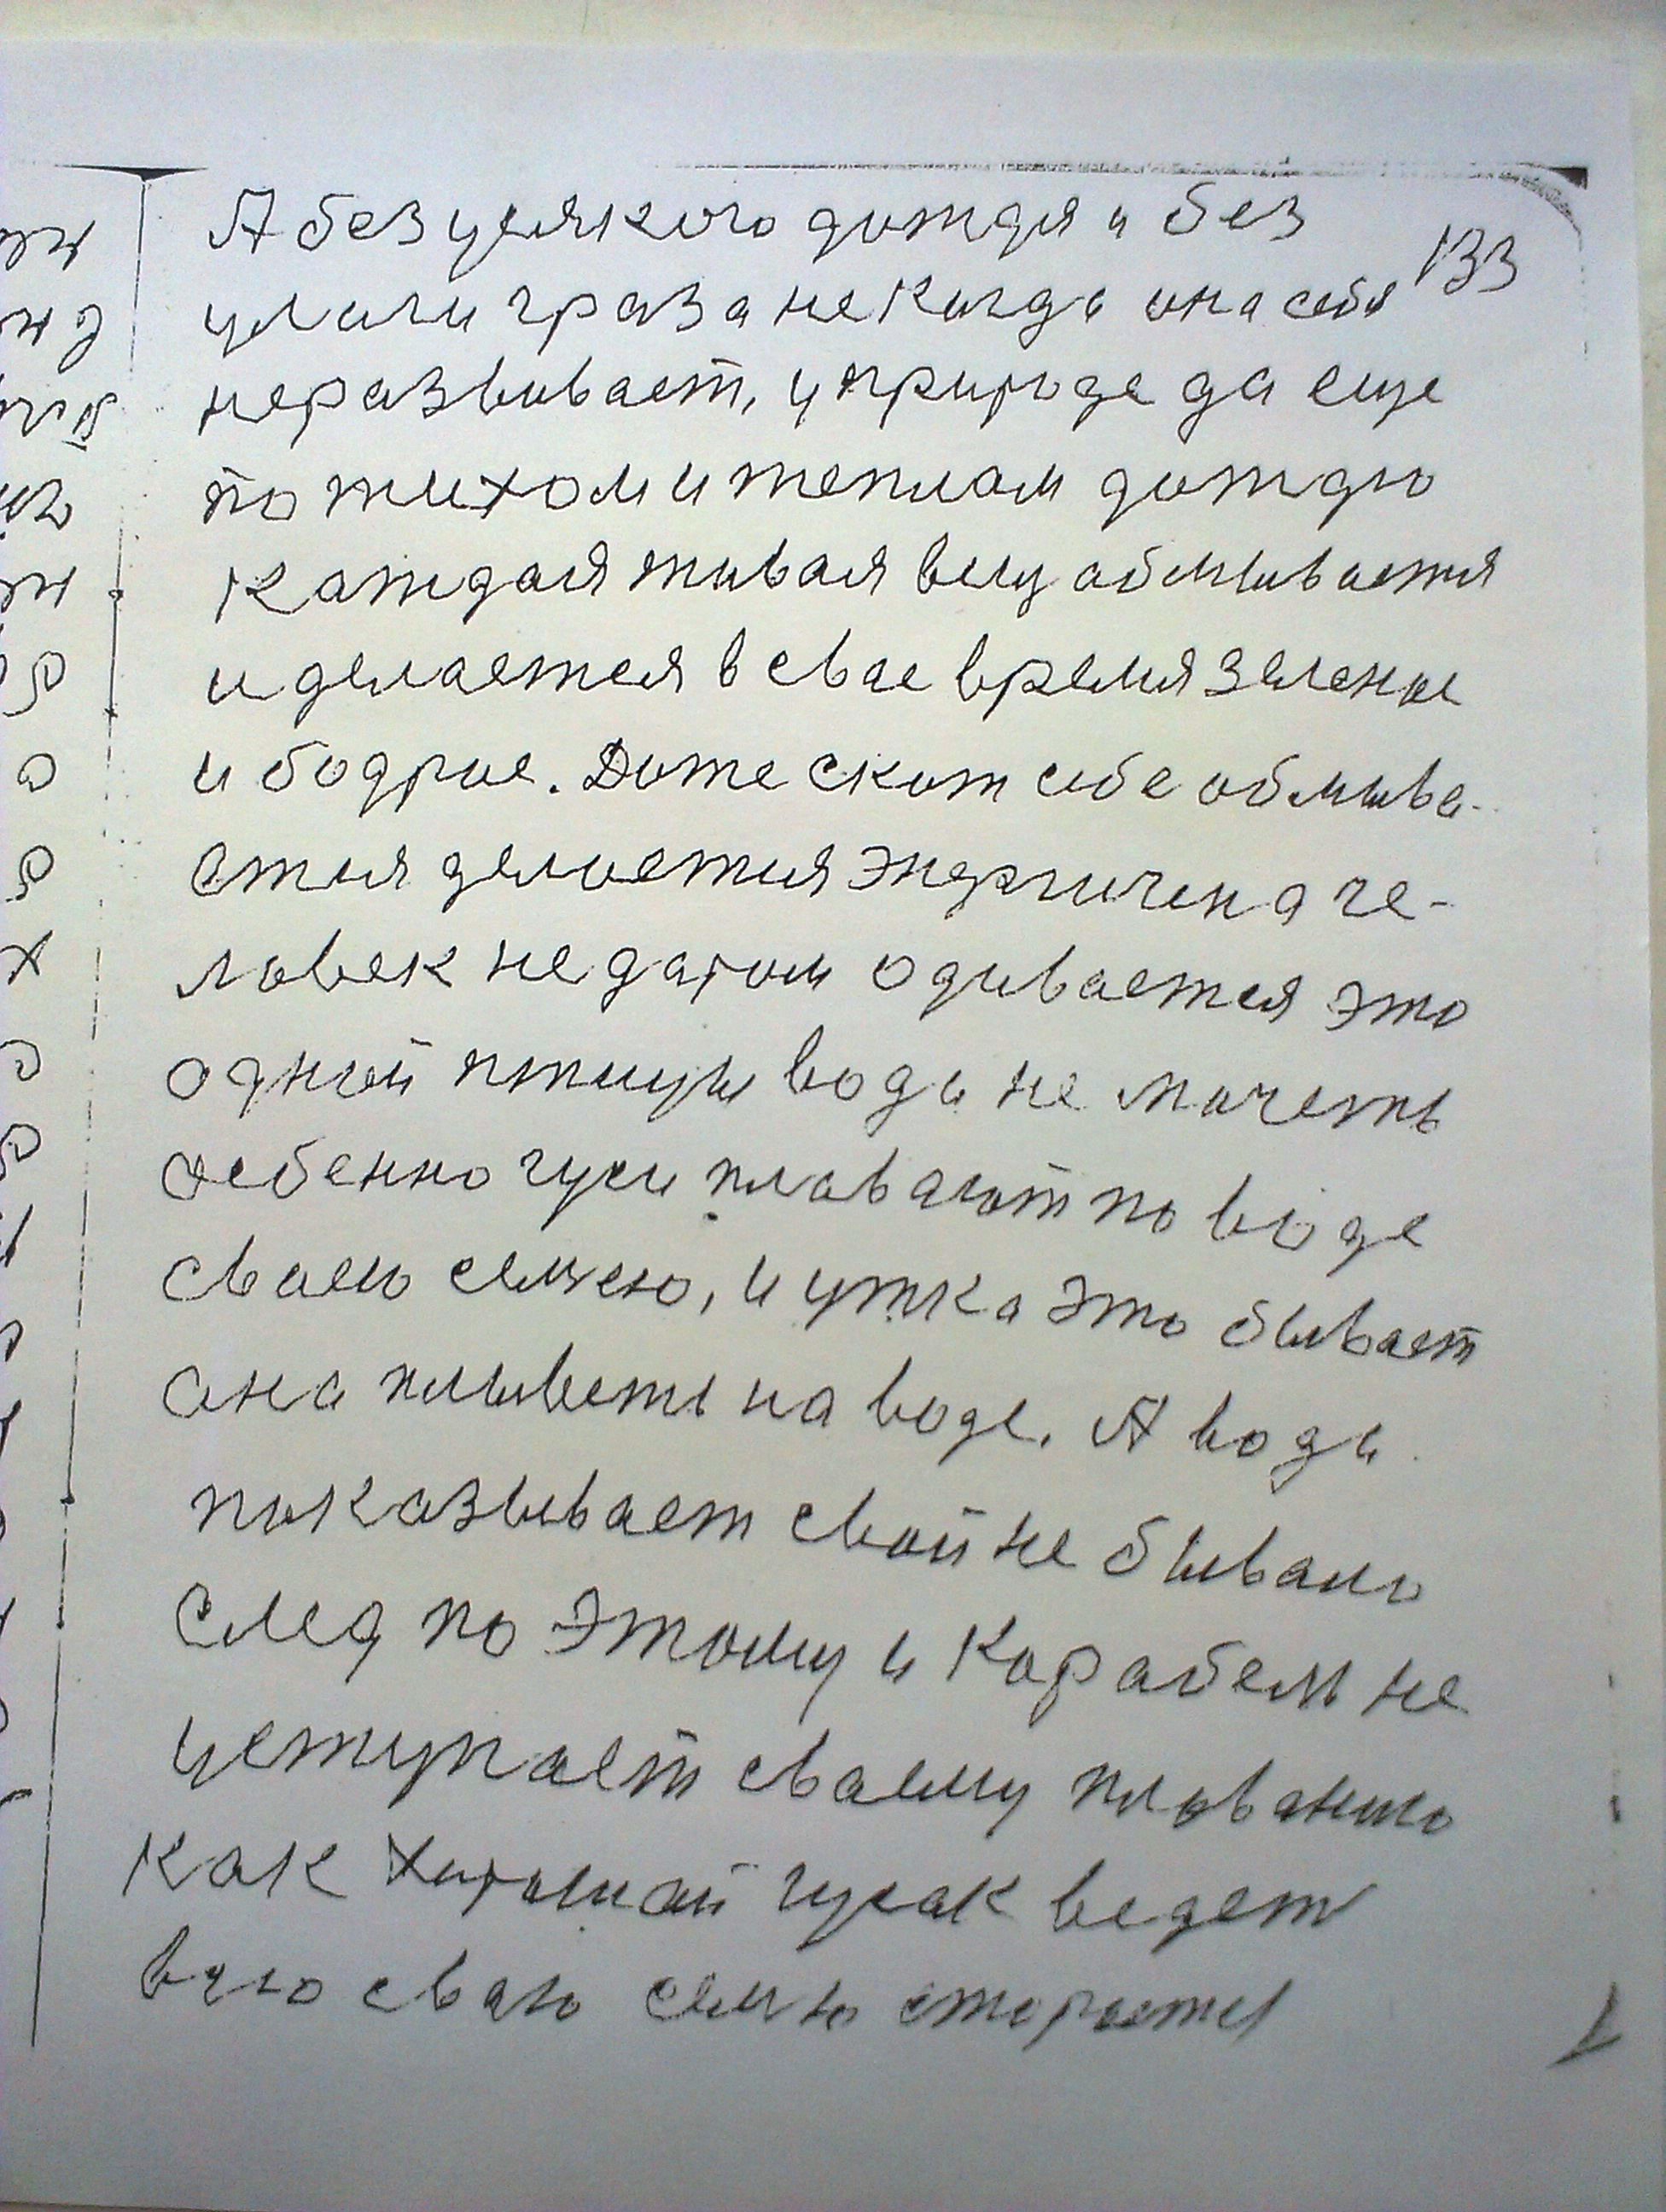 133
А без усякого дождя и без
улаги граза некогда она себя
неразвивает, у природе да еще
по тихом и теплам дождю
каждая живая вещ абмывается
и делается в свае время зеленое
и бодрое. Доже скот себе обмыва-
ется делается энергичен а че-
ловек не даром одивается это
одной птицы вода не мочеть
особенно гуси плавают по воде
сваею семею, и утка это бывает
она плыветь на воде. А вода
показывает свой не бывало
след по этому и корабель не
уступает сваему плаванию
как хороший гусак ведет
всю сваю семю старается